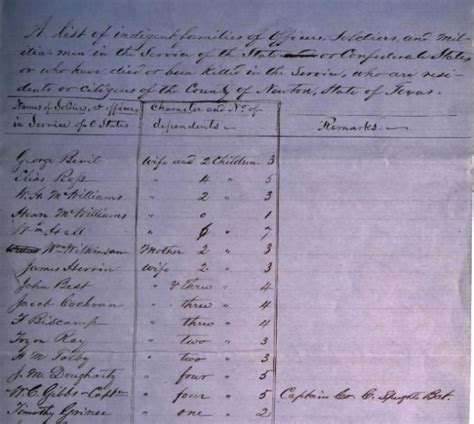 A list of indigent families of Officers, Soldiers, and Mili-
tia-men in the Service of the State or Confederate States
or who have died or been killed in the Service, who are resi-
dents or Citizens of the County of Newton, State of Texas.
Names of Soldiers, & officers in Service of C States
Character and No. of dependents.
Remarks.
George Bevil Wife and 2 Children 3
Elias Ross " 4 " 5
McWilliams " 2 " 3
McWilliams " 0 " 1
Wm Hall " 6 " 7
Wm Wilkinson Mother 2 " 3
James Herrin wife 2 " 3
John Best " & three " 4
Jacob Cochran " three " 4
F Biscamp " three " 4
Ray " two " 3
" two " 3
J. M. Dougharty " four " 5
W. C. Gibbs - Captn " four " 5 Captain Co. C. Speights Bat.
Timothy " one " 2